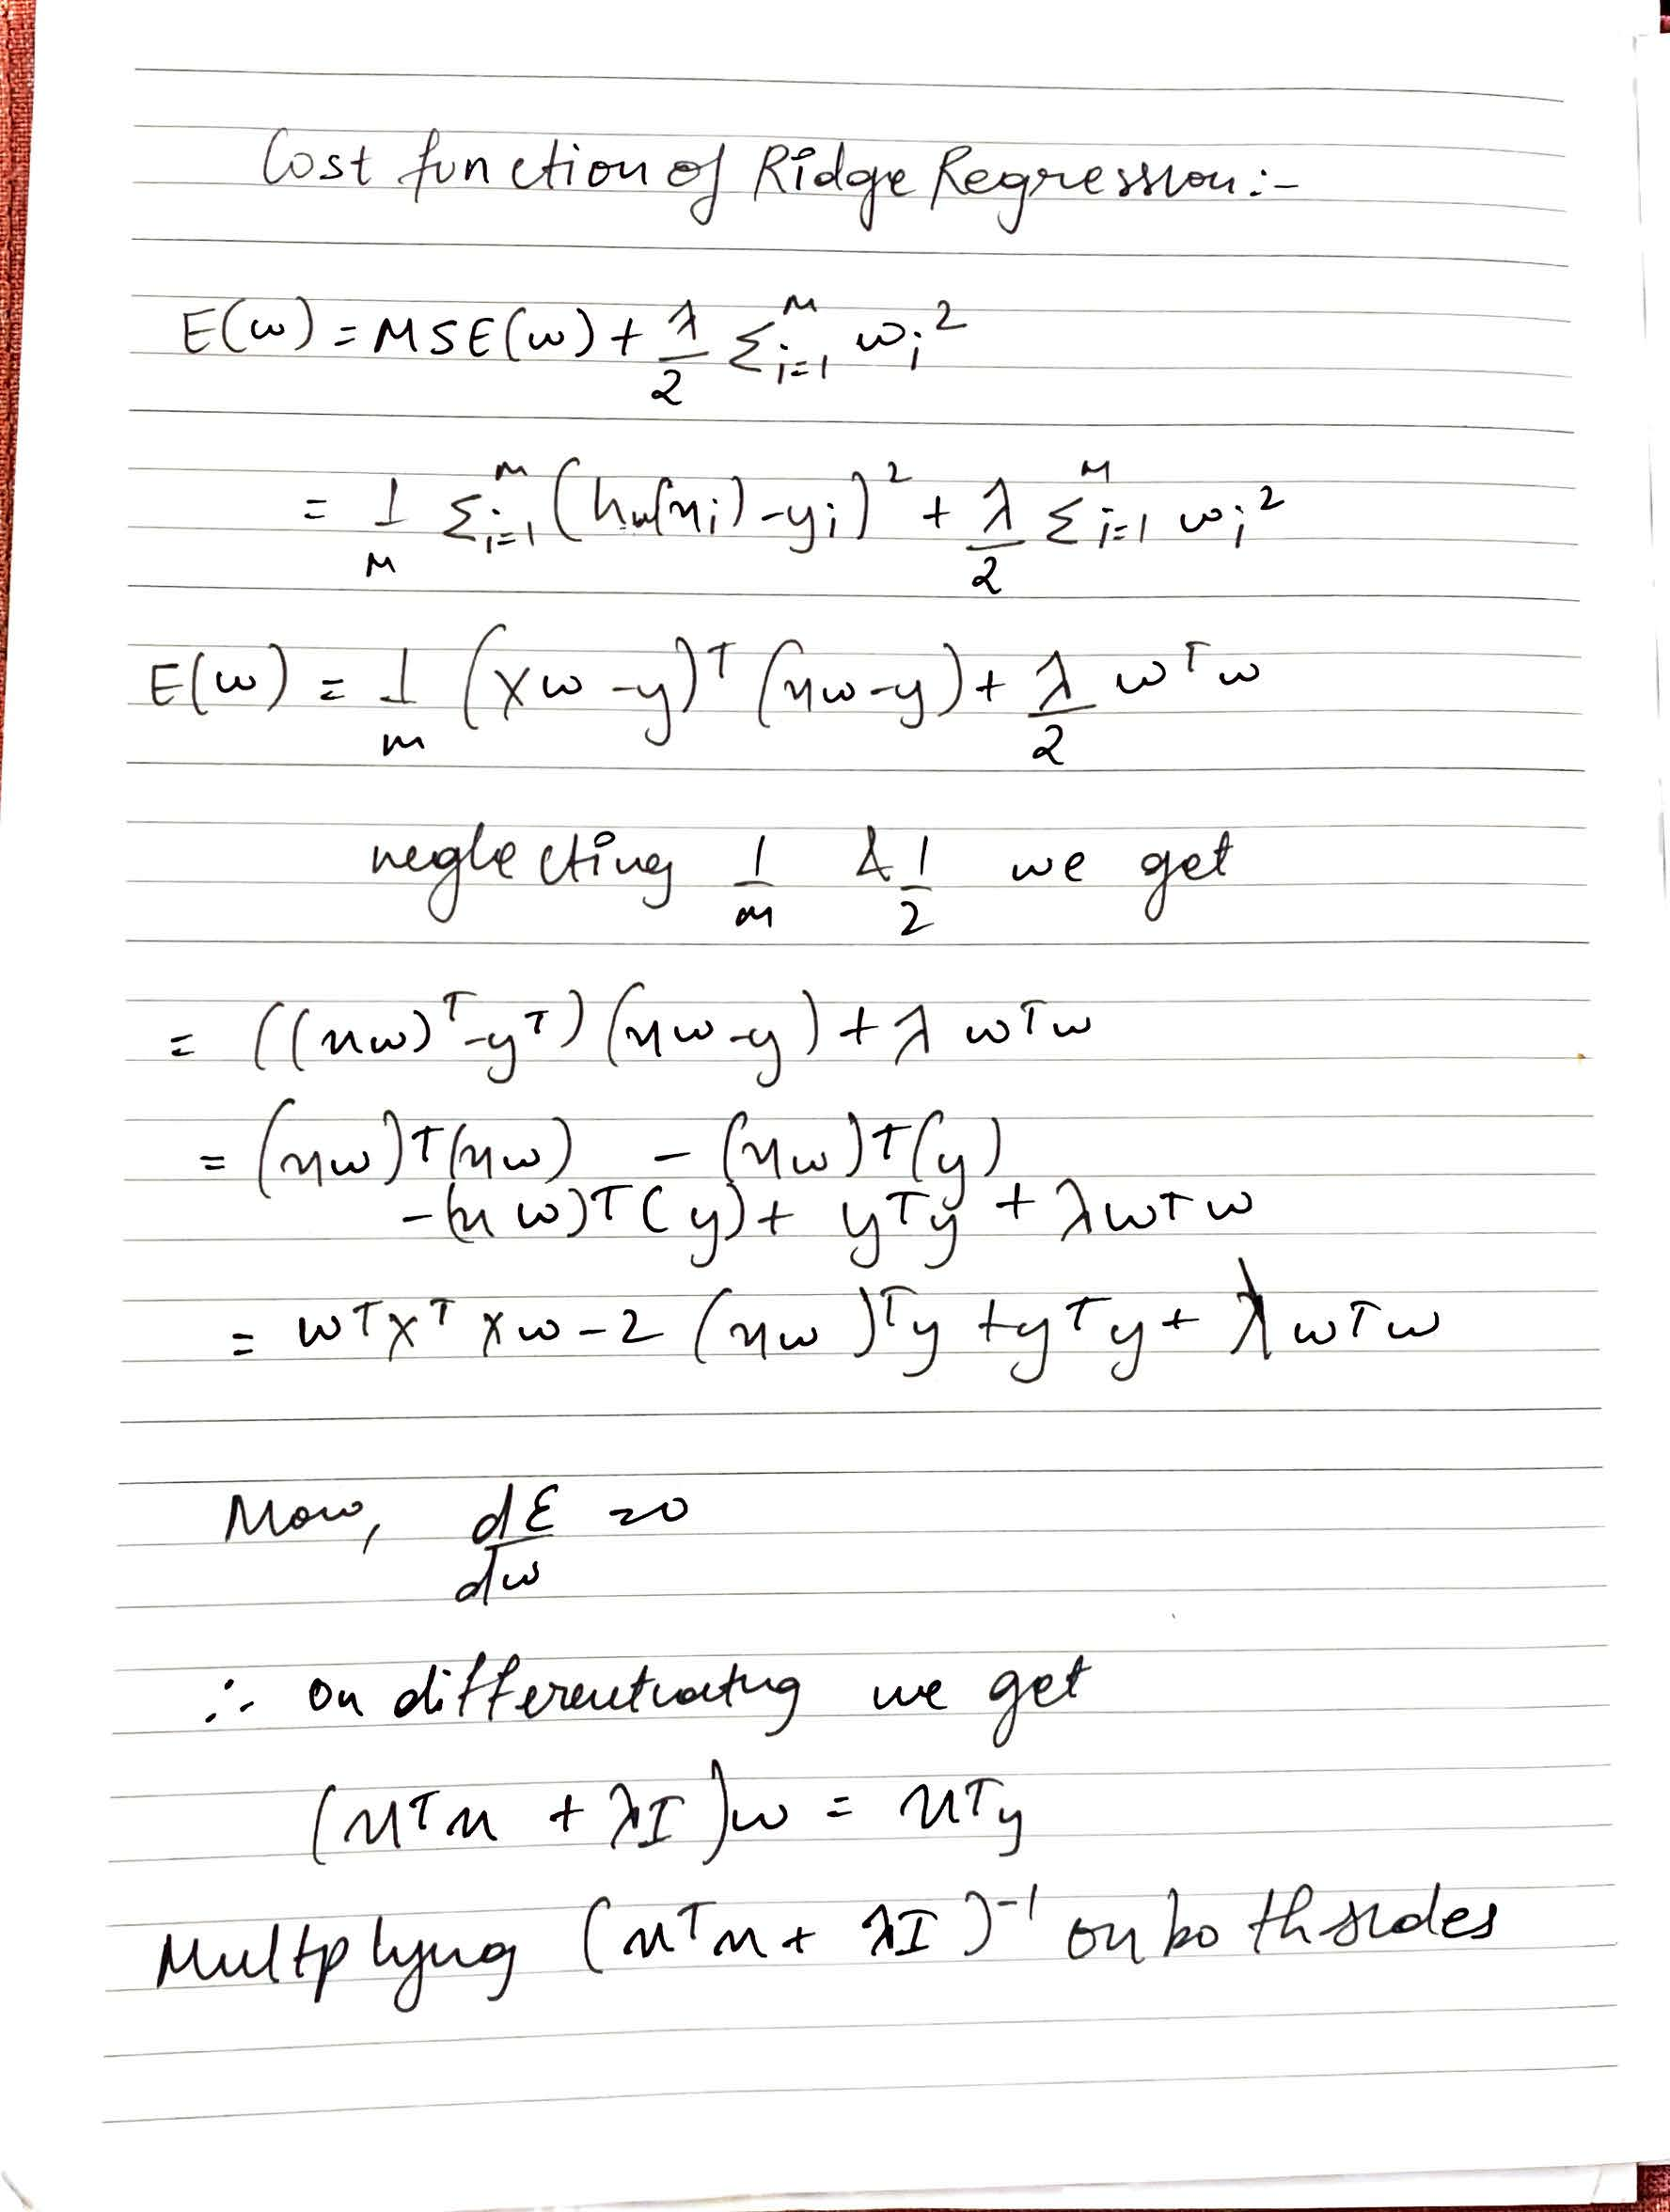 Cost function of Ridge Regression:-
E(w) = MSE(w) + λ/2 Σᵢ₌₁ᵐ wᵢ²
= 1/m Σᵢ₌₁ᵐ (h_w(xᵢ) - yᵢ)² + λ/2 Σᵢ₌₁ᵐ wᵢ²
E(w) = 1/m (Xw - y)ᵀ (xw - y) + λ/2 wᵀw
neglecting 1/m & 1/2 we get
= ((xw)ᵀ - yᵀ) (xw - y) + λ wᵀw
= (xw)ᵀ(xw) - (xw)ᵀ(y)
- (xw)ᵀ(y) + yᵀy + λwᵀw
= wᵀXᵀXw - 2 (xw)ᵀy + yᵀy + λwᵀw
Now, dE/dw = 0
∴ on differentiating we get
(xᵀx + λI)w = xᵀy
Multplying (xᵀx + λI)⁻¹ on both sides